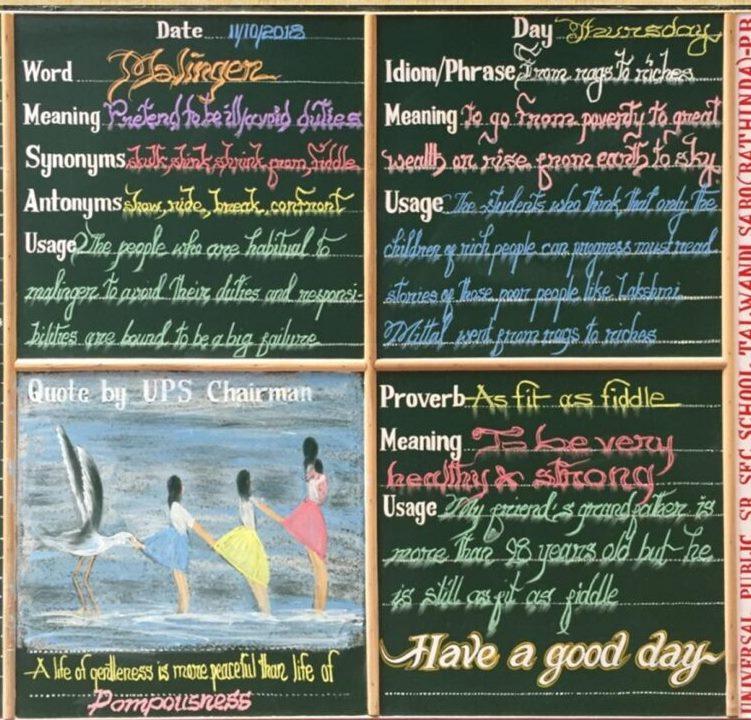 Date 11/10/2018
Word Malinger
Meaning Pretend to be ill/avoid duties
Synonyms skulk, shirk, shrink from, fiddle
Antonyms show, ride, break, confront
Usage The people who are habitual to
malinger to avoid their duties and responsi-
bilities are bound to be a big failure
Day Thursday
Idiom/Phrase From rags to riches
Meaning to go from poverty to great
wealth or, rise from earth to sky
Usage The students who think that only the
children of rich people can progress must read
stories of those poor people like Lakshmi
Mittal went from rags to riches
Quote by UPS Chairman
A life of gentleness is more peaceful than life of
Pompousness
Proverb As fit as fiddle
Meaning To be very
healthy & strong
Usage My friend's grandfather is
more than 98 years old but he
is still as fit as fiddle
Have a good day
UNIVERSAL PUBLIC SR. SEC. SCHOOL, TALWANDI SABO(BATHINDA)-PB